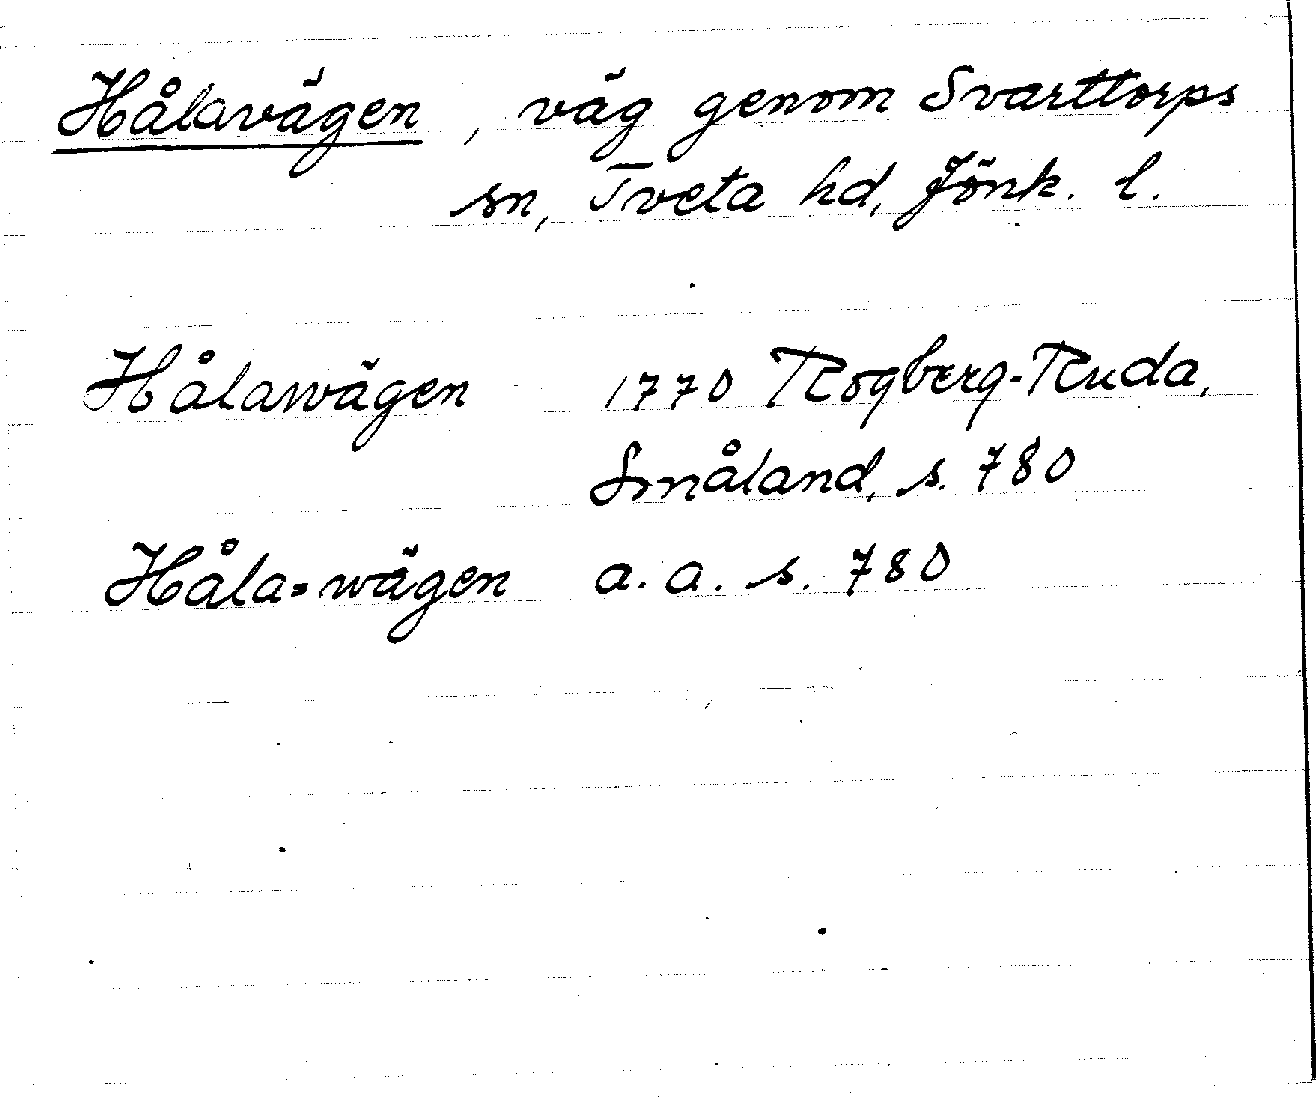 Hålavägen, väg genom Svarttorps
sn, Tveta hd, Jönk. l.
Hålawägen 1770 Rogberg-Ruda,
Småland, s. 780
Håla=wägen a. a. s. 780